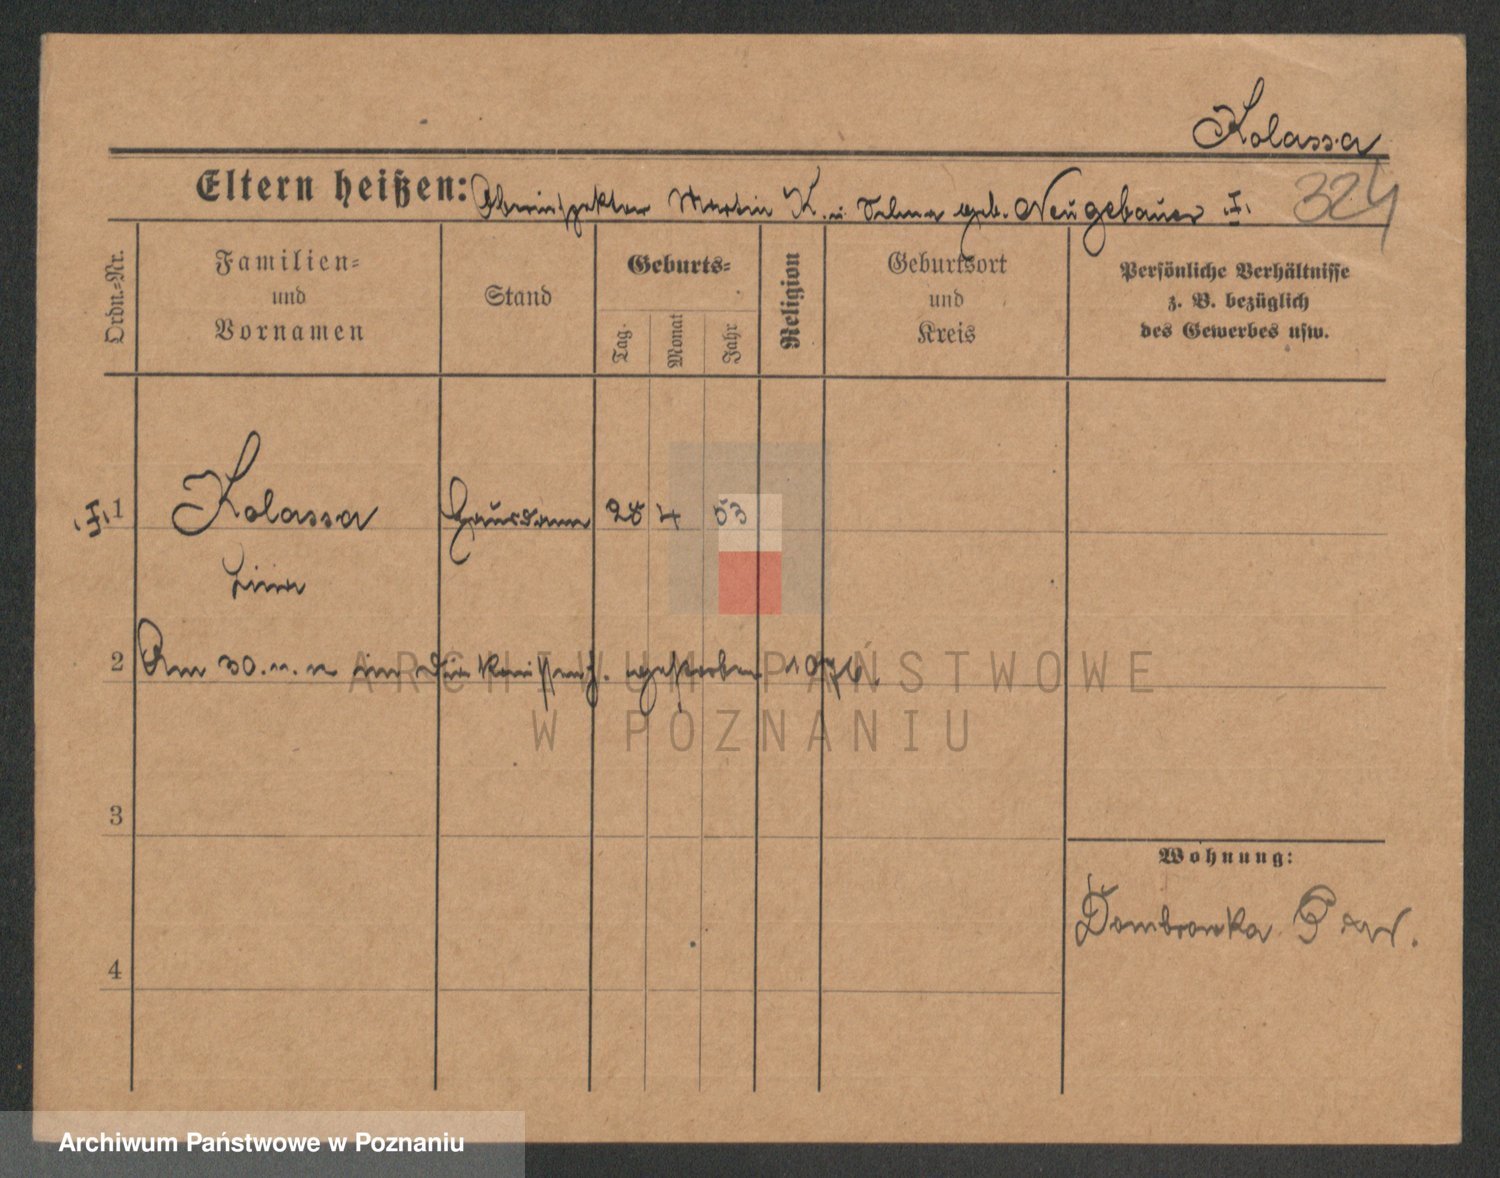 Kolassa
Eltern heißen: Oberinspektor Martin K. u. Selma geb. Neugebauer
324
Ordn.-Nr.
Familien- und Vornamen
Stand
Geburts-
Tag.
Monat
Jahr
Religion
Geburtsort und Kreis
Persönliche Verhältnisse z. B. bezüglich des Gewerbes usw.
1 Kolassa Hausdame 28 4 53
2 Am 30. im gestorben
3
Wohnung:
Dombrowka
4
ARCHIWUM PAŃSTWOWE
W POZNANIU
Archiwum Państwowe w Poznaniu